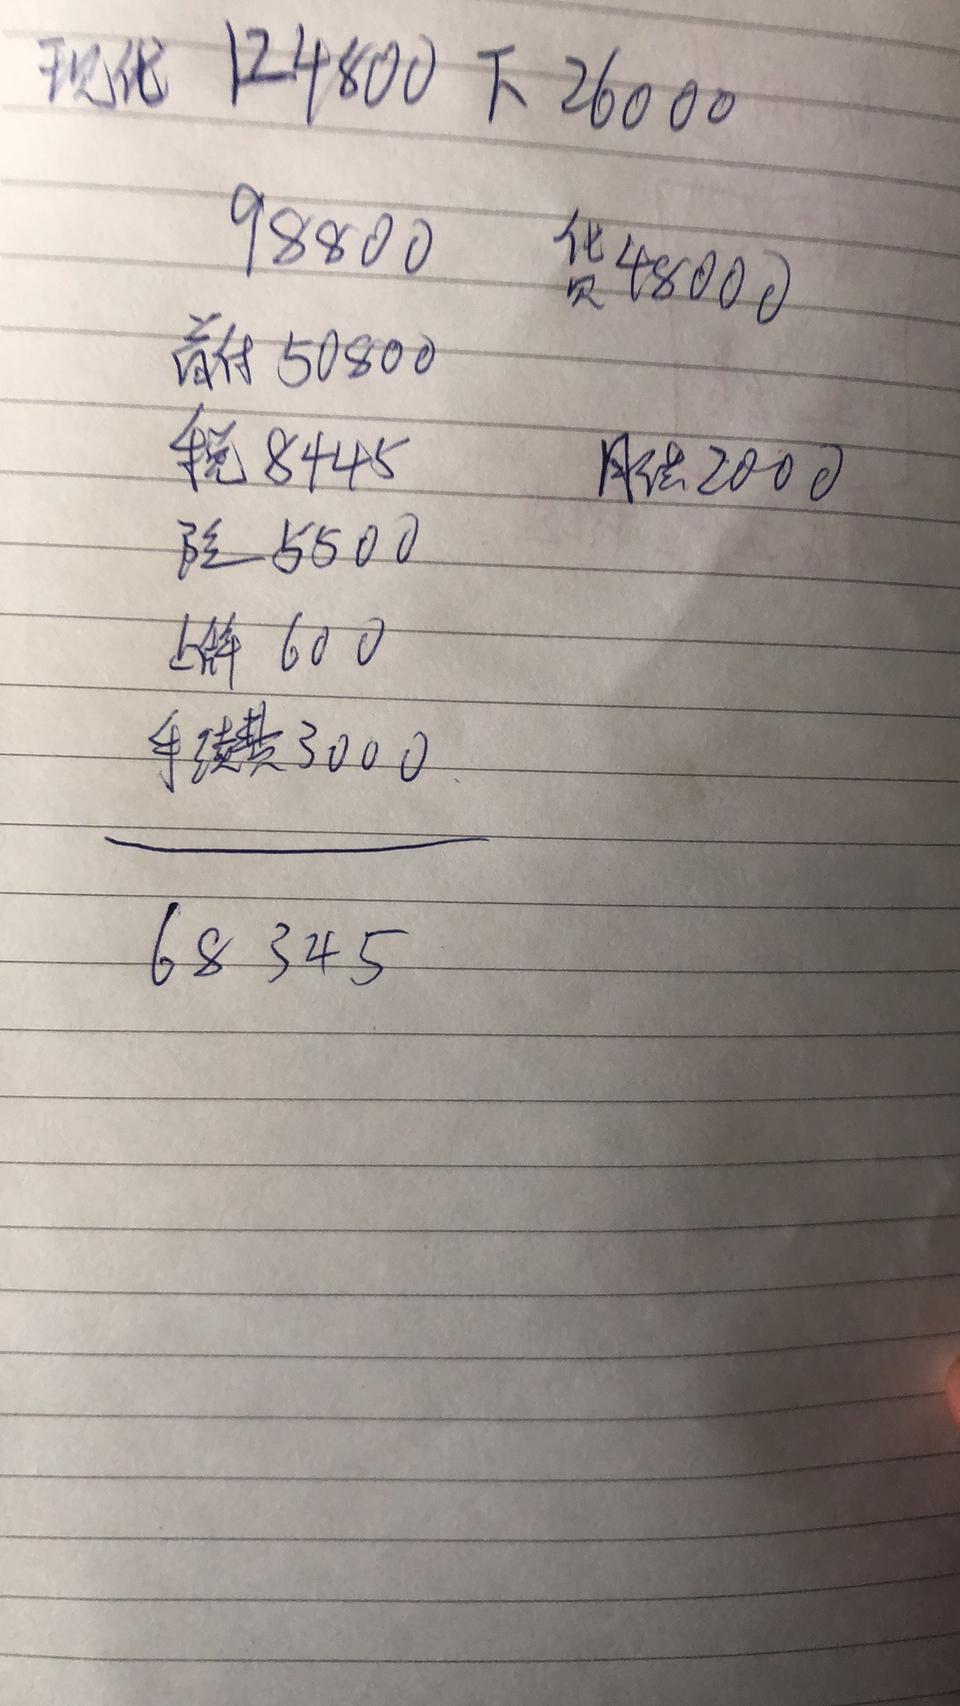 现代 124800 下 26000
98800 贷 48000
首付 50800
税 8445 月供 2000
险 5500
上牌 600
手续费 3000
68345